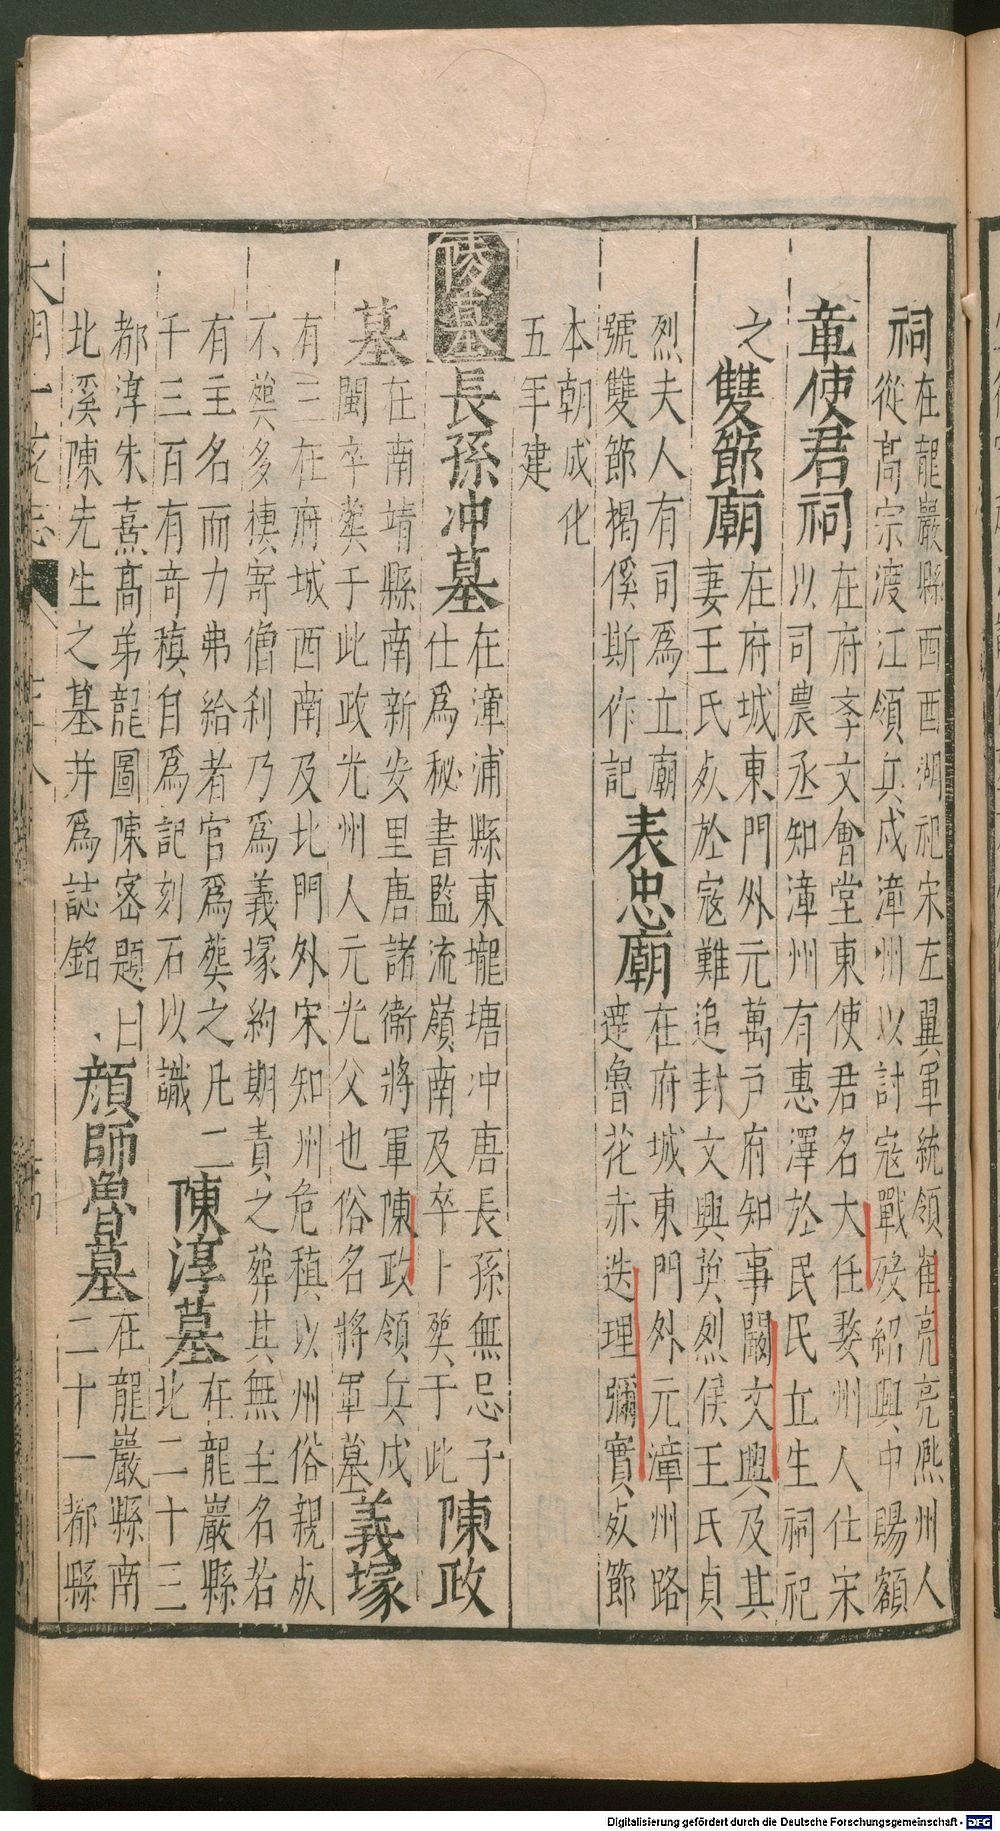 祠
在龍巖縣西西湖祀宋左翼軍統領崔亮亮凞州人
從髙宗渡江領兵戍漳州以討寇戰歿紹興中賜額
章使君祠
在府李文會堂東使君名大任婺州人仕宋
以司農丞知漳州有惠澤於民民立生祠祀
之
雙節廟
在府城東門外元萬戶府知事闞文興及其
妻王氏死於寇難追封文興英烈侯王氏貞
烈夫人有司爲立廟
號雙節揭傒斯作記
表忠廟
在府城東門外元漳州路
達魯花赤迭理彌實死節
本朝成化
五年建
陵墓
長孫冲墓
在漳浦縣東壠塘冲唐長孫無忌子
仕爲秘書監流嶺南及卒卜葬于此
陳政
墓
在南靖縣南新安里唐諸衛將軍陳政領兵戍
閩卒葬于此政光州人元光父也俗名將軍墓
義塚
有三在府城西南及北門外宋知州危稹以州俗親死
不葬多槥寄僧刹乃爲義塚約期責之葬其無主名若
有主名而力弗給者官爲葬之凡二
千三百有竒稹自爲記刻石以識
陳淳墓
在龍巖縣
北二十三
都淳朱熹髙弟龍圖陳宻題曰
北溪陳先生之墓并爲誌銘
顔師魯墓
在龍巖縣南
二十一都縣
大明一統志
Digitalisierung gefördert durch die Deutsche Forschungsgemeinschaft - DFG